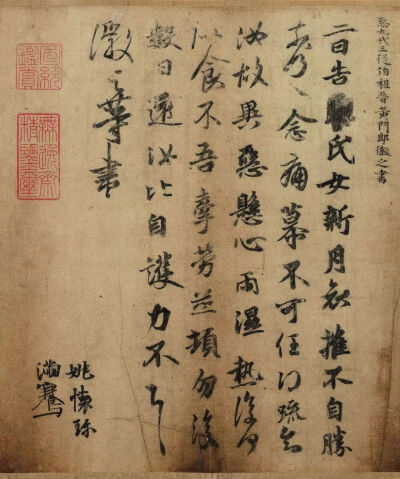 臣九代三從伯祖晉黃門郎徽之書
二日告氏女新月哀摧不自勝
奈何奈何念痛慕不可任得疏知
汝故異惡懸心雨濕熱復何
似食不吾牽勞並頓勿復
數日還汝比自護力不具
徽之等書
姚懷珍
滿騫